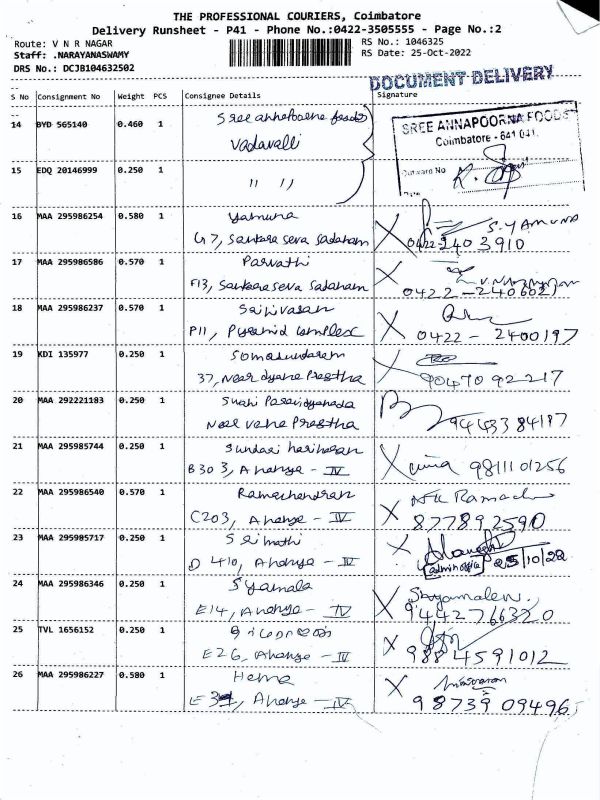 THE PROFESSIONAL COURIERS, Coimbatore
Delivery Runsheet - P41 - Phone No.:0422-3505555 - Page No.:2
Route: V N R NAGAR
RS No.: 1046325
Staff: .NARAYANASWAMY
RS Date: 25-Oct-2022
DRS No.: DCJB104632502
DOCUMENT DELIVERY
S No Consignment No Weight PCS Consignee Details Signature
14 BYD 565140 0.460 1 Sree annapoorna foods
Vadavalli
SREE ANNAPOORNA FOODS
Coimbatore - 641 041.
Outward No
Date
15 EDQ 20146999 0.250 1
" "
16 MAA 295986254 0.580 1 Yamuna X S.YAMUNA
G7, Sankara Seva Sadanam 0422-2403910
17 MAA 295986586 0.570 1 Parvathi X
F13, Sankara Seva Sadanam 0422-2406021
18 MAA 295986237 0.570 1 Srinivasan X
P11, Pyramid Complex 0422-2400197
19 KDI 135977 0.250 1 Somasundaram X
37, Near dyana Prastha 90470 92217
20 MAA 292221183 0.250 1
Near vana Prastha 94433 84187
21 MAA 295985744 0.250 1 Sundari hariharan X
B303, Ananya - IV 9811101256
22 MAA 295986540 0.570 1 Ramachandran X
C203, Ananya - IV 877892590
23 MAA 295985717 0.250 1 Srimathi X
D 410, Ananya - IV 25/10/22
24 MAA 295986346 0.250 1 Syamala X Shyamalen.
E14, Ananya - IV 9442766320
25 TVL 1656152 0.250 1 X
E26, Ananya - IV 9884591012
26 MAA 295986227 0.580 1 Hema X
Ananya - IV 98739 09496